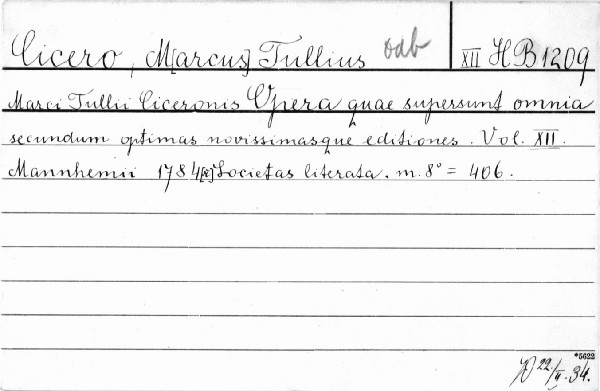 Cicero, M[arcus] Tullius odb XII H B 1209
Marci Tullii Ciceronis Opera quae supersunt omnia
secundum optimas novissimasque editiones. Vol. XII.
Mannhemii 1784[8] Societas literata. m. 8° = 406.
*5622
22/II. 34.